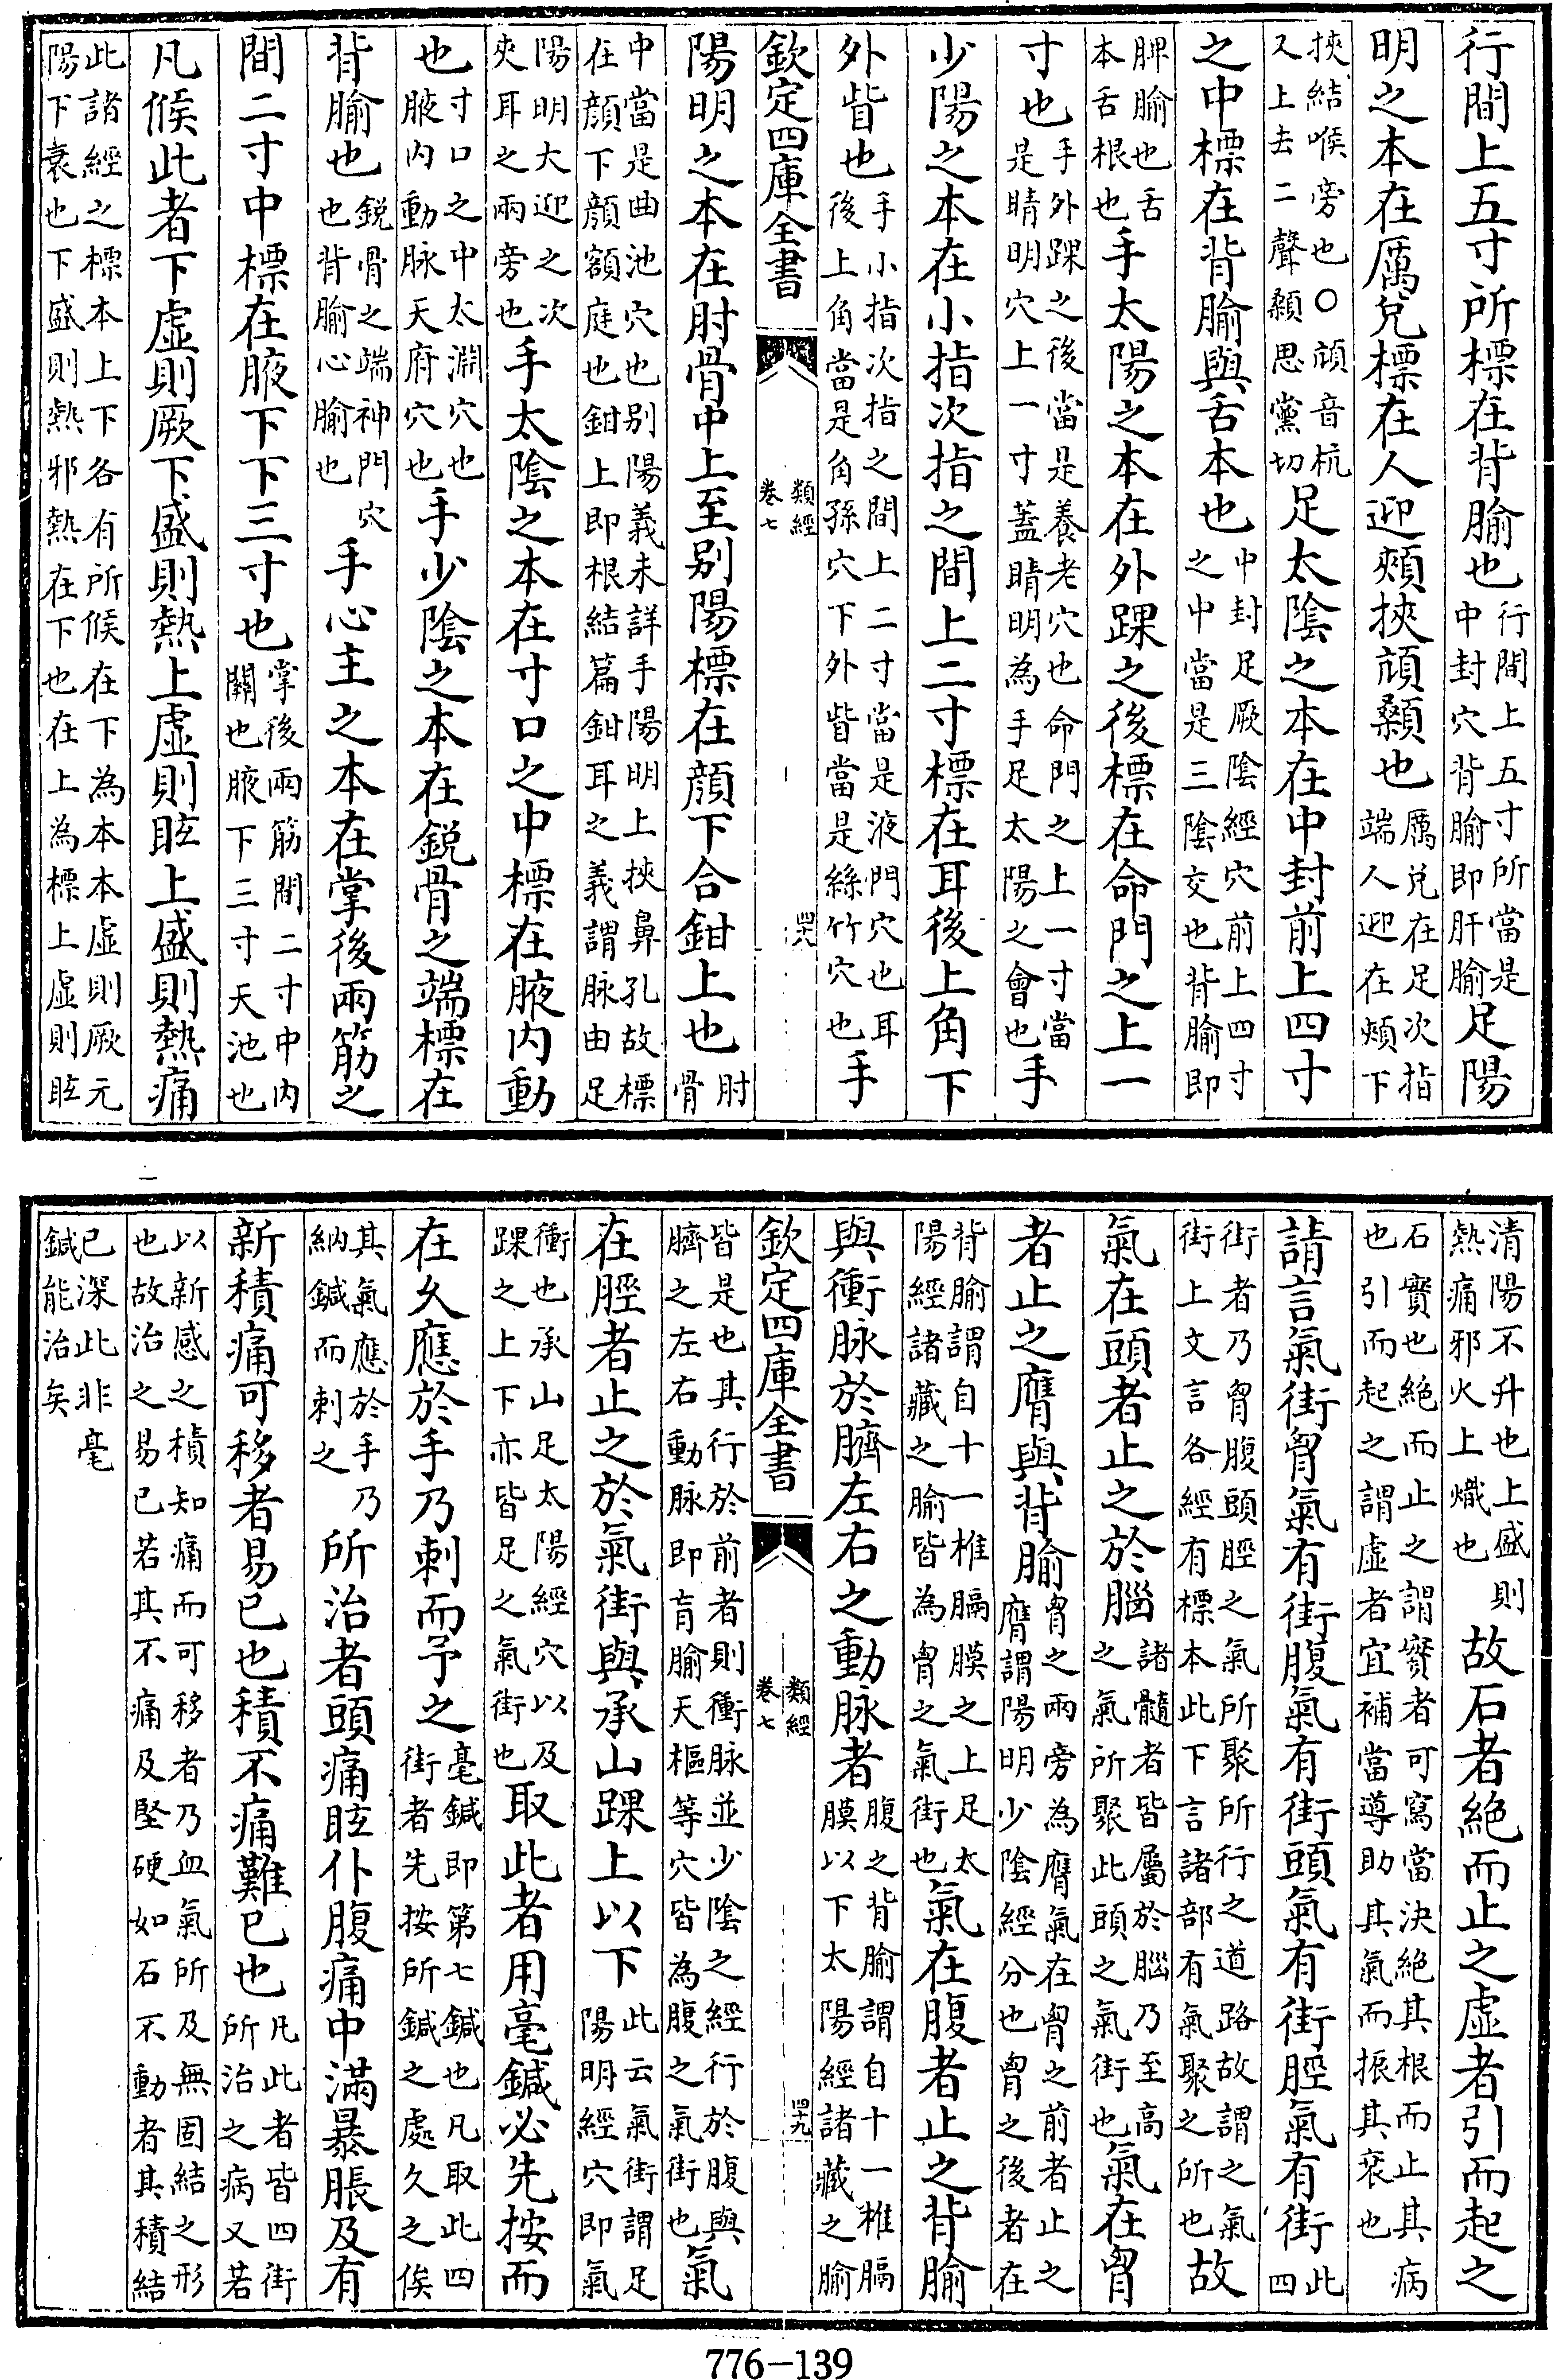 行間上五寸所標在背腧也行間上五寸所當是中封穴背腧即肝腧足陽
明之本在厲兌標在人迎頰挾頏顙也厲兌在足次指端人迎在頰下
挾結喉旁也〇頏音杭又上去二聲顙思黨切足太陰之本在中封前上四寸
之中標在背腧與舌本也中封足厥陰經穴前上四寸之中當是三陰交也背腧即
脾腧也舌本舌根也手太陽之本在外踝之後標在命門之上一
寸也手外踝之後當是養老穴也命門之上一寸當是睛明穴上一寸蓋睛明為手足太陽之會也手
少陽之本在小指次指之間上二寸標在耳後上角下
外眥也手小指次指之間上二寸當是液門穴也耳後上角當是角孫穴下外眥當是絲竹穴也手
欽定四庫全書 類經 卷七 四十八
陽明之本在肘骨中上至别陽標在顏下合鉗上也肘骨
中當是曲池穴也别陽義未詳手陽明上挾鼻孔故標在顏下顏額庭也鉗上即根結篇鉗耳之義謂脉由足
陽明大迎之次夾耳之兩旁也手太陰之本在寸口之中標在腋内動
也寸口之中太淵穴也腋内動脉天府穴也手少陰之本在銳骨之端標在
背腧也銳骨之端神門穴也背腧心腧也手心主之本在掌後兩筋之
間二寸中標在腋下下三寸也掌後兩筋間二寸中内關也腋下三寸天池也
凡候此者下虛則厥下盛則熱上虛則眩上盛則熱痛
此諸經之標本上下各有所候在下為本本虛則厥元陽下衰也下盛則熱邪熱在下也在上為標上虛則眩
清陽不升也上盛則熱痛邪火上熾也故石者絶而止之虛者引而起之
石實也絶而止之謂實者可寫當決絶其根而止其病也引而起之謂虛者宜補當導助其氣而振其衰也
請言氣街胷氣有街腹氣有街頭氣有街脛氣有街此四
街者乃胷腹頭脛之氣所聚所行之道路故謂之氣街上文言各經有標本此下言諸部有氣聚之所也故
氣在頭者止之於腦諸髓者皆屬於腦乃至高之氣所聚此頭之氣街也氣在胷
者止之膺與背腧胷之兩旁為膺氣在胷之前者止之膺謂陽明少陰經分也胷之後者在
背腧謂自十一椎膈膜之上足太陽經諸藏之腧皆為胷之氣街也氣在腹者止之背腧
與衝脉於臍左右之動脉者腹之背腧謂自十一椎膈膜以下太陽經諸藏之腧
欽定四庫全書 類經 卷七 四十九
皆是也其行於前者則衝脉並少陰之經行於腹與臍之左右動脉即肓腧天樞等穴皆為腹之氣街也氣
在脛者止之於氣街與承山踝上以下此云氣街謂足陽明經穴即氣
衝也承山足太陽經穴以及踝之上下亦皆足之氣街也取此者用毫鍼必先按而
在久應於手乃刺而予之毫鍼即第七鍼也凡取此四街者先按所鍼之處久之俟
其氣應於手乃納鍼而刺之所治者頭痛眩仆腹痛中滿暴脹及有
新積痛可移者易已也積不痛難已也凡此者皆四街所治之病又若
以新感之積知痛而可移者乃血氣所及無固結之形也故治之易已若其不痛及堅硬如石不動者其積結
已深此非毫鍼能治矣
776-139